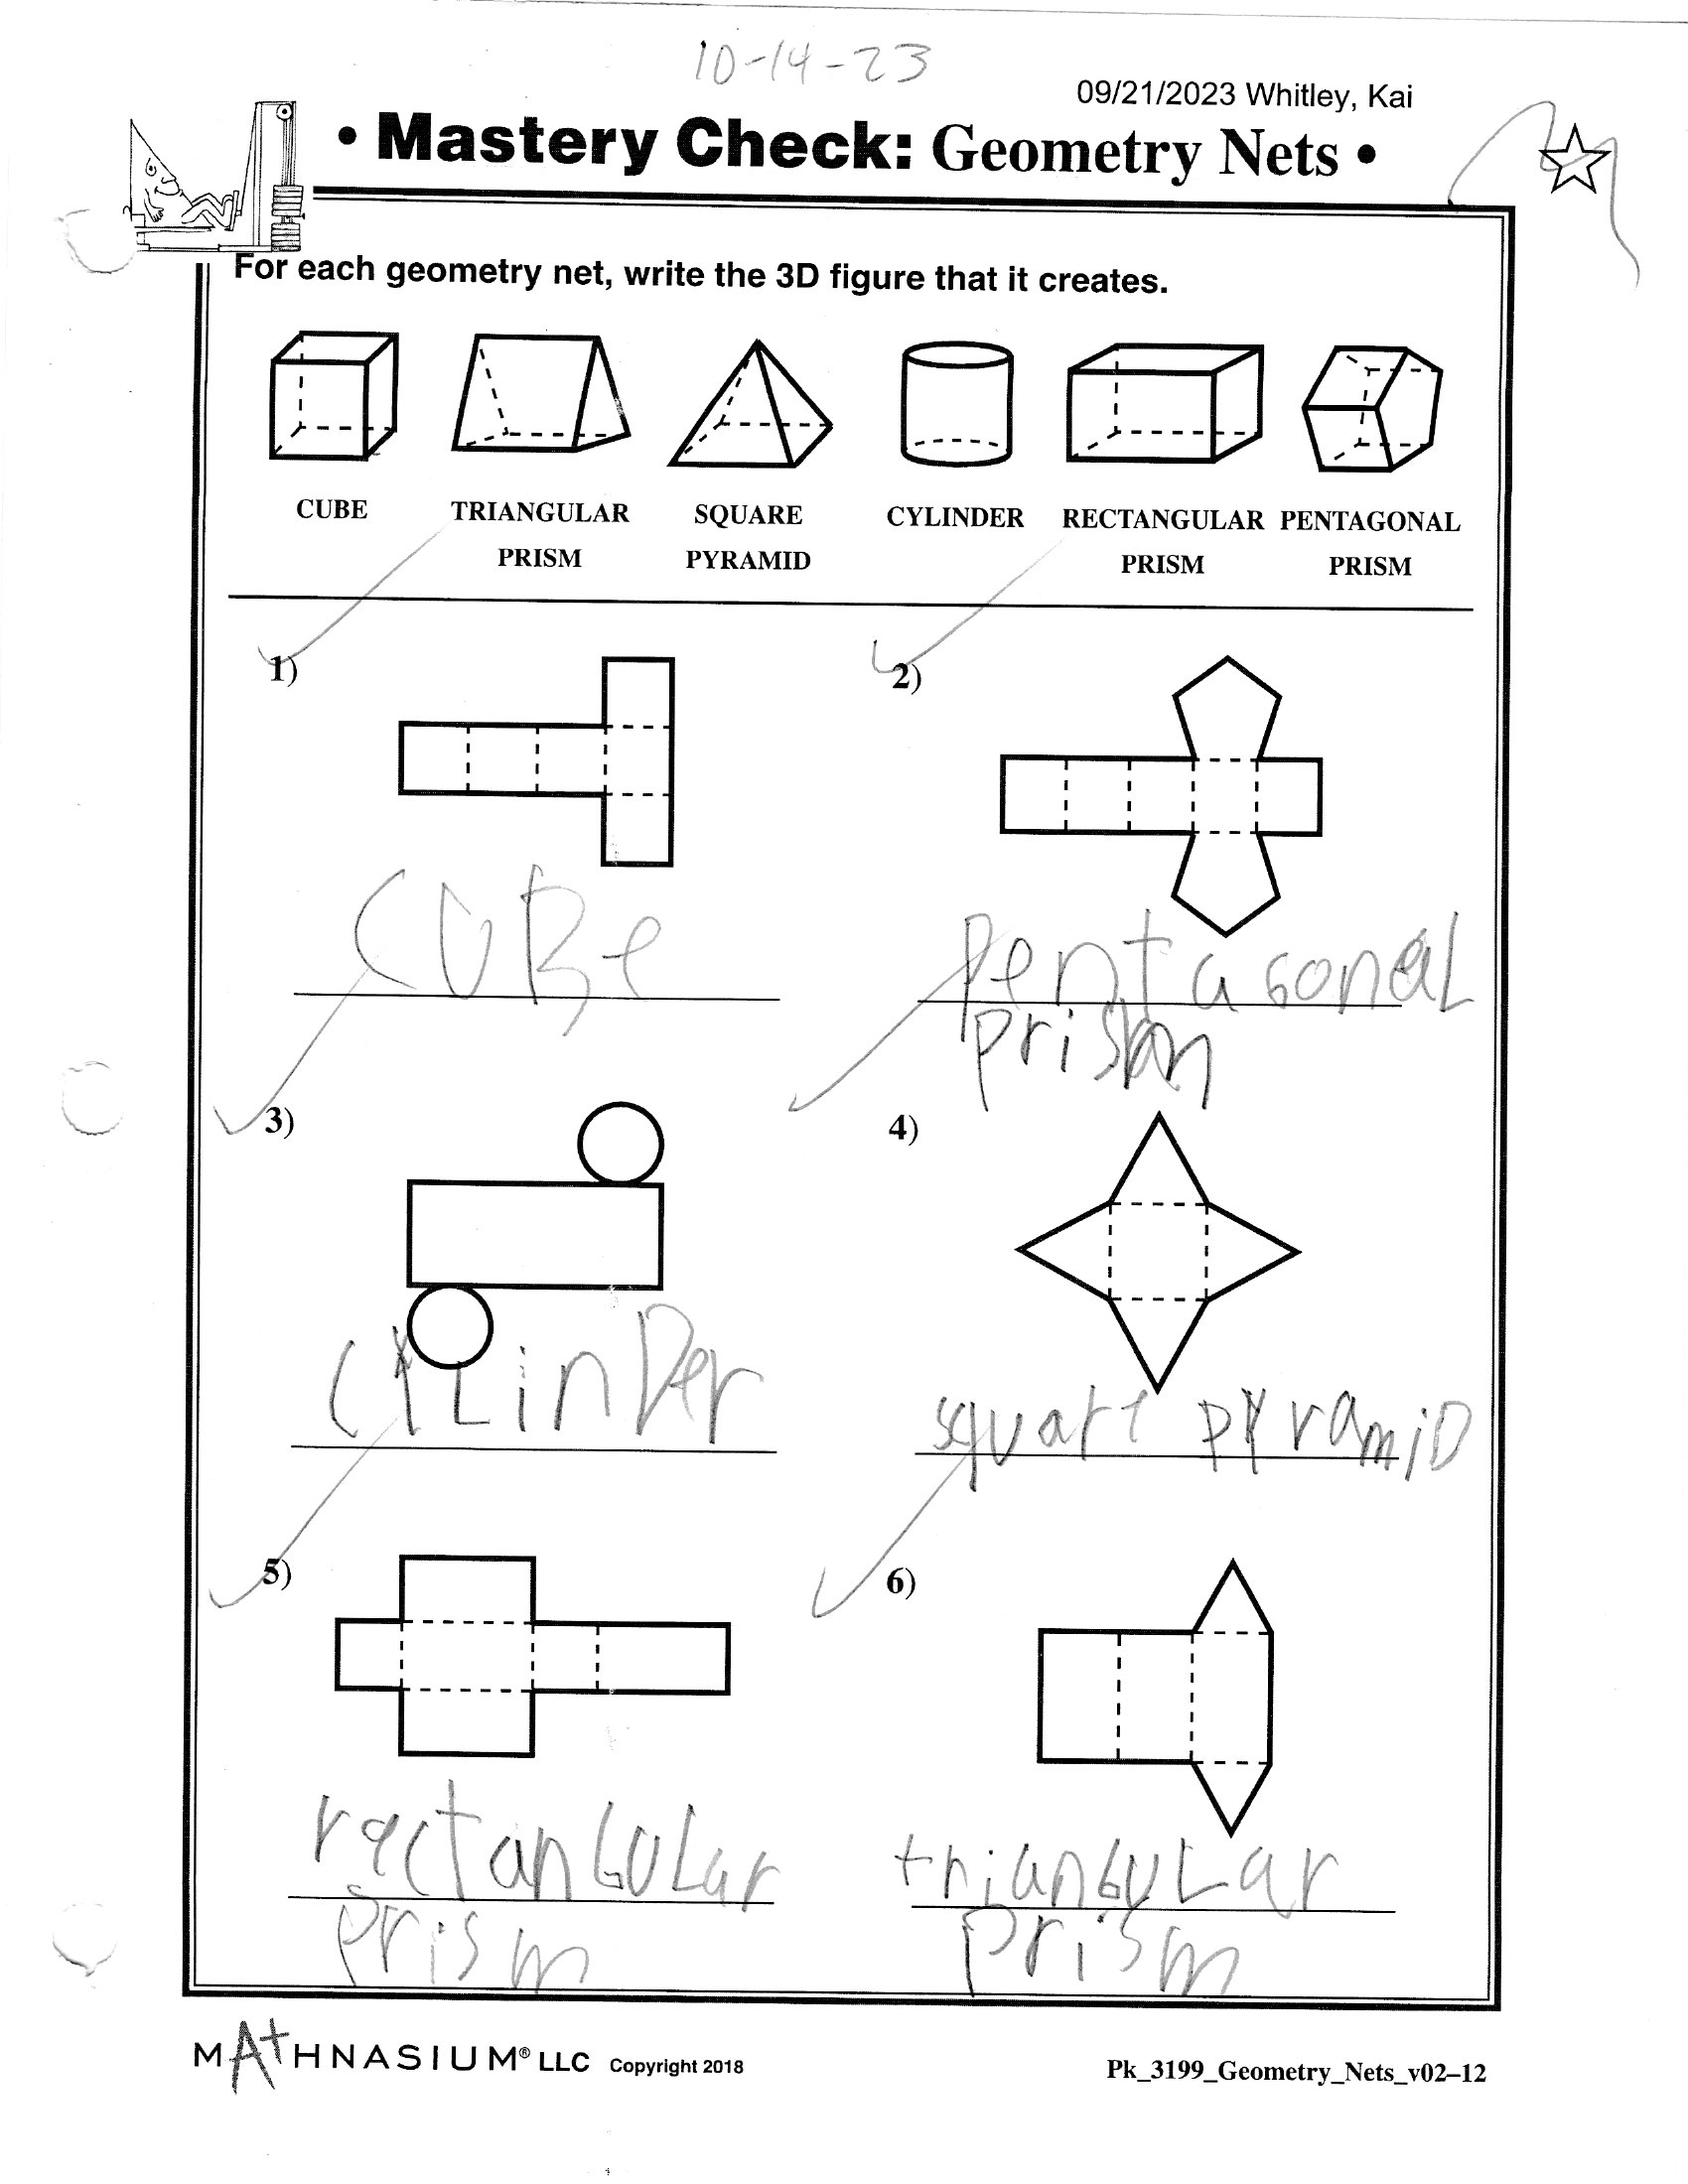 10-14-23
09/21/2023 Whitley, Kai
• Mastery Check: Geometry Nets •
For each geometry net, write the 3D figure that it creates.
CUBE TRIANGULAR SQUARE CYLINDER RECTANGULAR PENTAGONAL
PRISM PYRAMID PRISM PRISM
1) 2)
CUBe pentaGonal
prism
3) 4)
CYLinDer square pyramiD
5) 6)
rectanGULar trianGULar
prism prism
MATHNASIUM® LLC Copyright 2018 Pk_3199_Geometry_Nets_v02–12